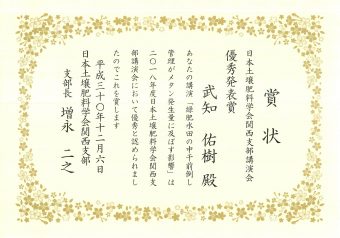 賞状
日本土壌肥料学会関西支部講演会
優秀発表賞
武知 佑樹 殿
あなたの講演「緑肥水田の中干前倒し
管理がメタン発生量に及ぼす影響」は
二〇一八年度日本土壌肥料学会関西支
部講演会において優秀と認められまし
たのでこれを賞します
平成三十〇年十二月六日
日本土壌肥料学会関西支部
支部長 増永 二之